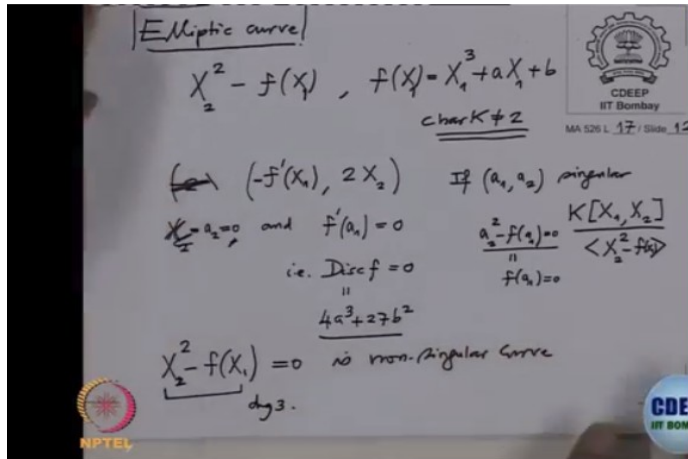 Elliptic curve
X₂² - f(X₁) , f(X₁) = X₁³ + aX₁ + b
char K ≠ 2
CDEEP
IIT Bombay
MA 526 L 17 / Slide 12
(-f'(X₁), 2X₂) If (a₁, a₂) singular
a₂ = 0, and f'(a₁) = 0
a₂² - f(a₁) = 0
K[X₁, X₂]
<X₂² - f(X₁)>
i.e. Disc f = 0
f(a₁) = 0
4a³ + 27b²
X₂² - f(X₁) = 0 is non-singular curve
deg 3.
NPTEL
CDE
IIT BOM